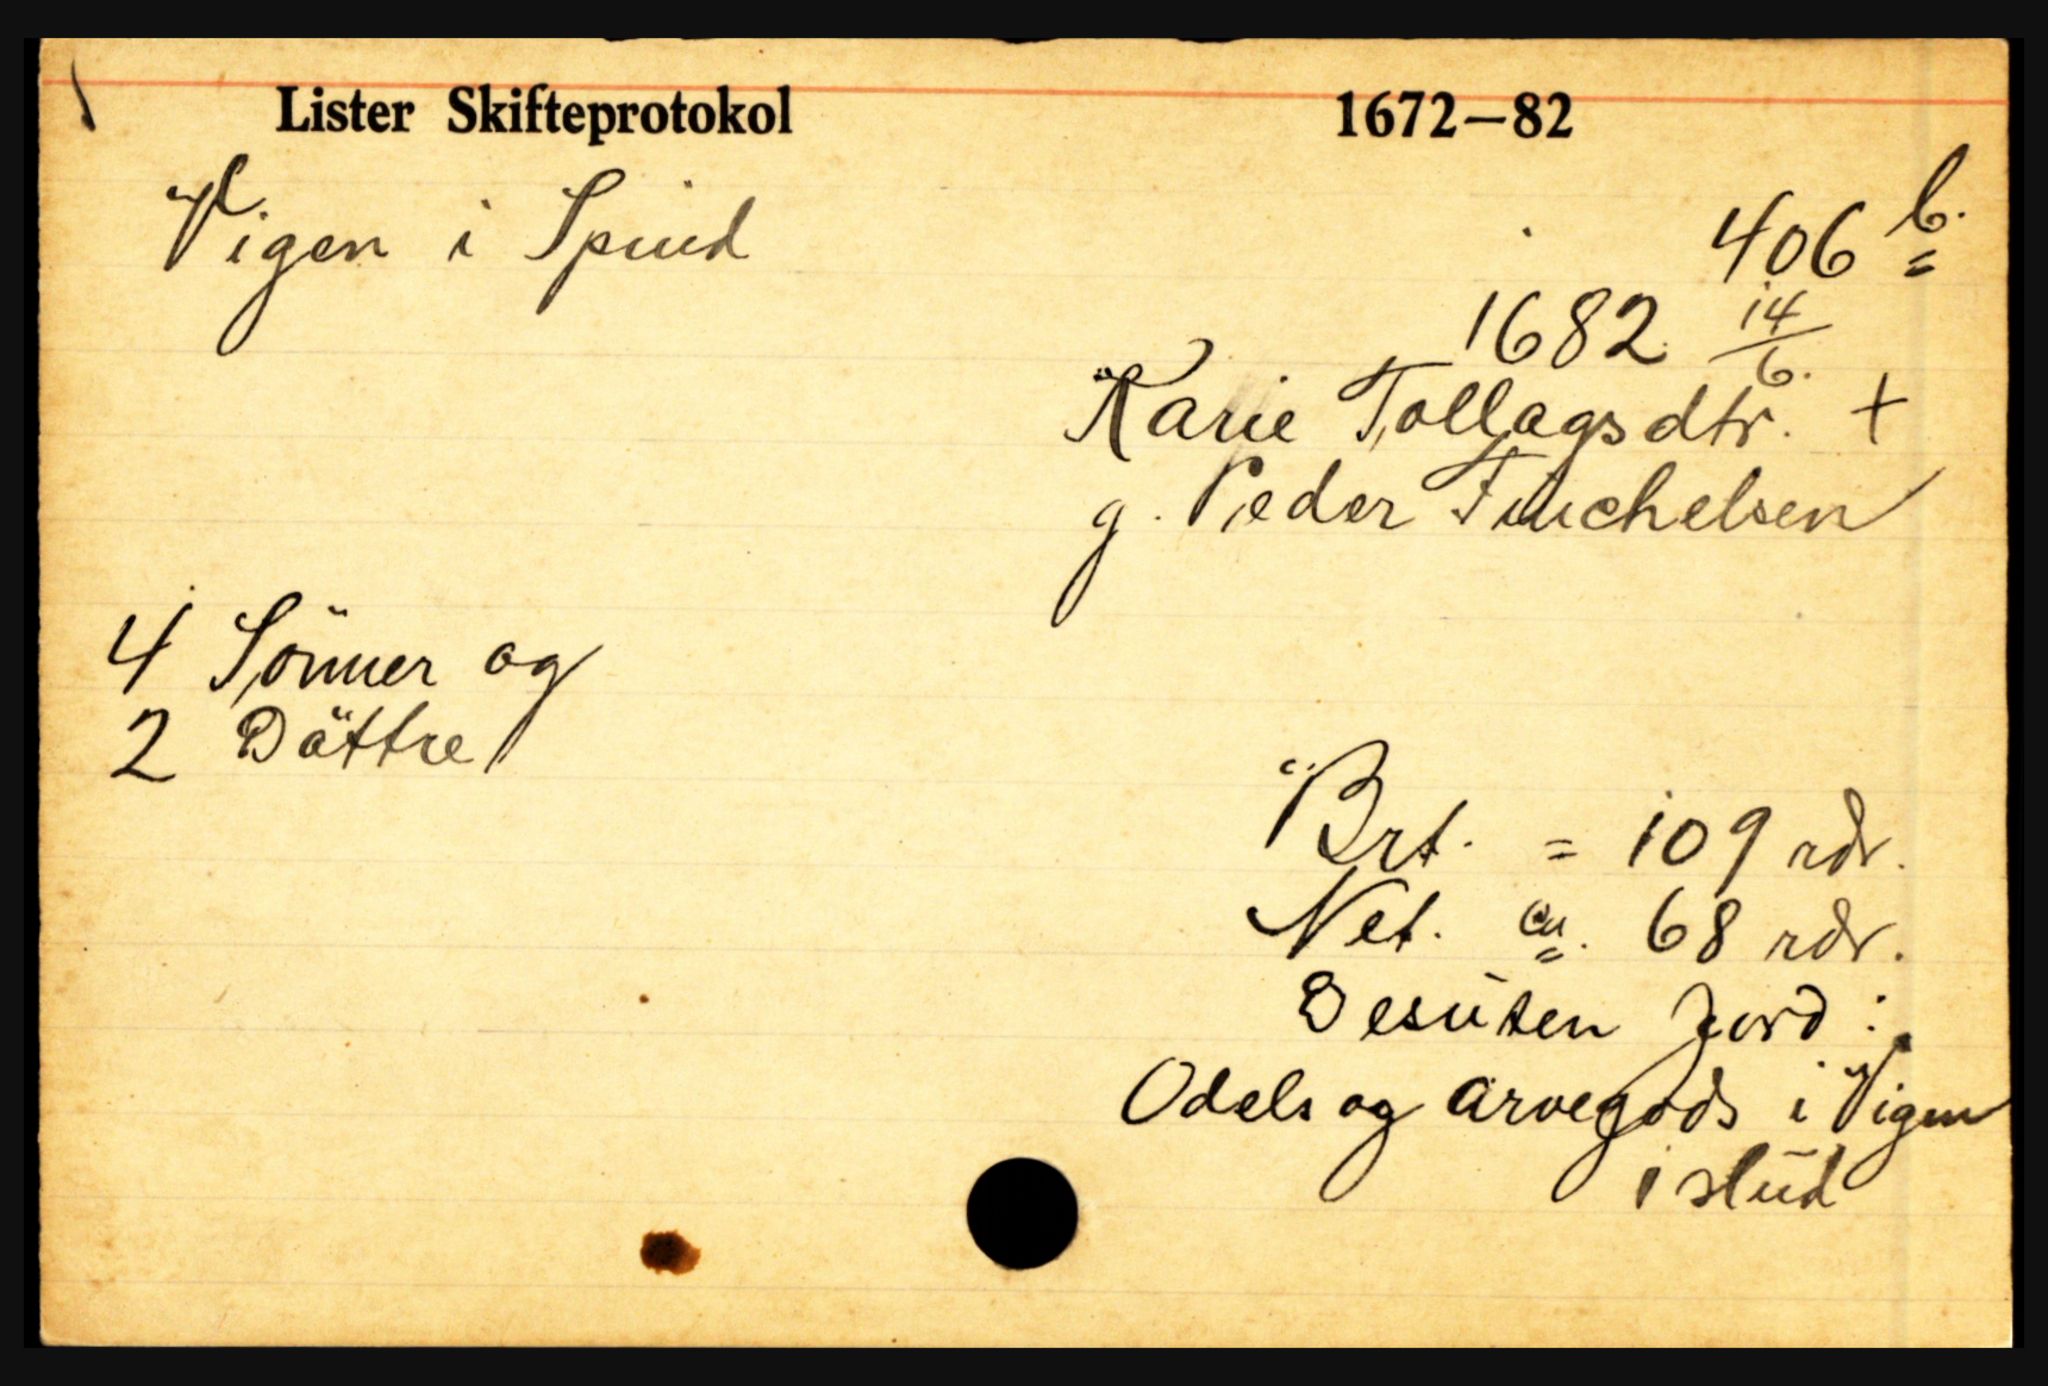 Lister Skifteprotokol 1672–82
Vigen i Spind
406 b.
1682 14/6.
Karie Tollagsdtr. +
g. Peder Finchelsen
4 Sönner og
2 Döttre
Brt. = 109 rdr.
Net. ca. 68 rdr.
Desuten Jord:
Odels og arvegods i Vigen
i slud